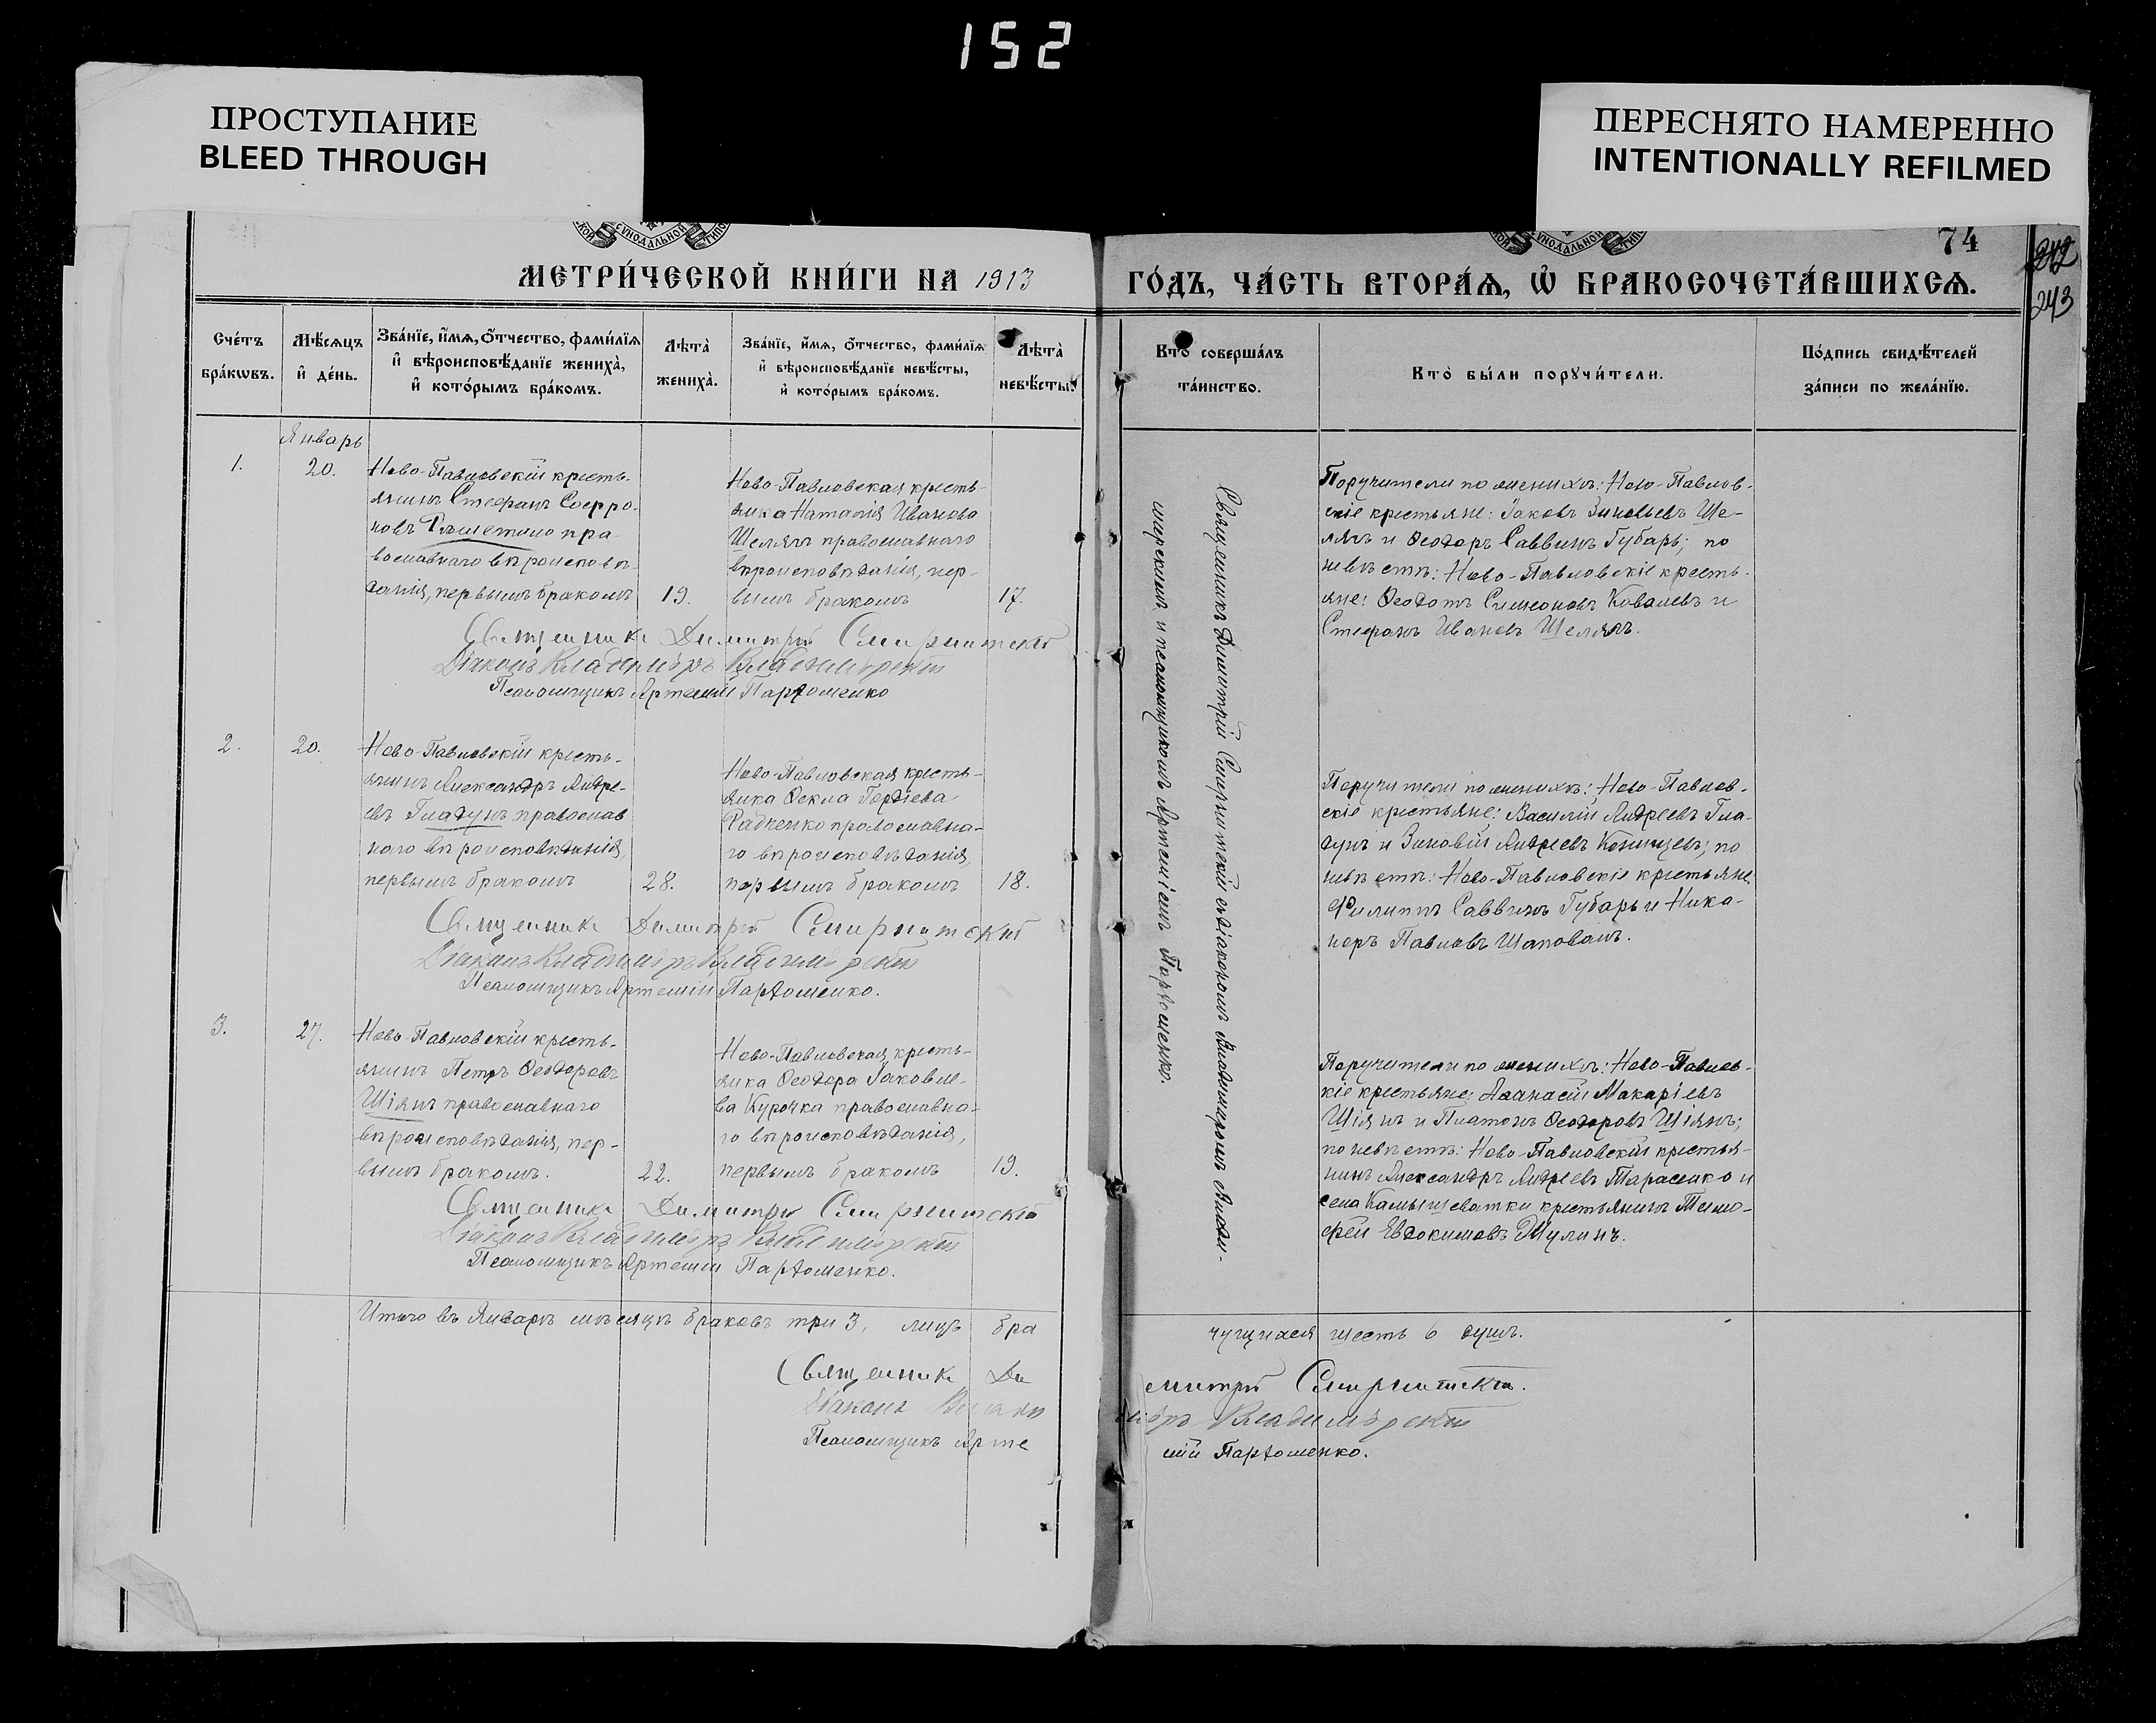 152
ПРОСТУПАНИЕ
BLEED THROUGH
ПЕРЕСНЯТО НАМЕРЕННО
INTENTIONALLY REFILMED
74
242
243
МЕТРИ́ЧЕСКОЙ КНИ́ГИ НА 1913
ГО́ДЪ, ЧА́СТЬ ВТОРА́Ѧ, Ѽ БРАКОСОЧЕТА́ВШИХСѦ.
Сче́тъ
бра́кѡвъ.
Мѣ́сѧцъ
и҆ де́нь.
Зва́нїе, и҆́мѧ, ѻ҆́тчество, фами́лїѧ
и҆ вѣроисповѣ́данїе жениха̀,
и҆ кото́рымъ бра́комъ.
Лѣта̀
жениха̀.
Зва́нїе, и҆́мѧ, ѻ҆́тчество, фами́лїѧ
и҆ вѣроисповѣ́данїе невѣ́сты,
и҆ кото́рымъ бра́комъ.
Лѣта̀
невѣ́сты.
Кто̀ соверша́лъ
та́инство.
Кто̀ бы́ли порꙋчи́тели.
По́дпись свидѣ́телей
за́писи по жела́нїю.
Январь
1.
20.
Ново-Павловскій кресть-
янинъ Стефанъ Софро-
новъ
пра-
вославнаго вѣроисповѣ-
данія, первымъ бракомъ
19.
Ново-Павловская кресть-
янка Наталія Иванова
Шелягъ православнаго
вѣроисповѣданія, пер-
вымъ бракомъ
17.
Поручители по женихѣ: Ново-Павлов-
скіе крестьяне: Іаковъ Зиновьевъ Ше-
лягъ и Ѳеодоръ Саввинъ Губарь; по
невѣстѣ: Ново-Павловскіе кресть-
яне: Ѳеодотъ Симеоновъ Ковалевъ и
Стефанъ Ивановъ Шелягъ.
Священникъ Димитрій Смирнитскій
Діаконъ Владиміръ Владимірскій
Псаломщикъ Артемій Пархоменко
2.
20.
Ново-Павловскій кресть-
янинъ Александръ Андре-
евъ Гладунъ православ
наго вѣроисповѣданія,
первымъ бракомъ
28.
Ново-Павловская кресть-
янка Ѳекла Гордіева
Радченко православна-
го вѣроисповѣданія,
первымъ бракомъ
18.
Поручители по женихѣ: Ново-Павлов-
скіе крестьяне: Василій Андреевъ Гла-
дунъ и Зиновій Андреевъ; по
невѣстѣ: Ново-Павловскіе крестьяне,
Филиппъ Саввинъ Губарь и Ника-
норъ Павловъ Шаповалъ.
Священникъ Димитрій Смирнитскій
Діаконъ Владиміръ Владимірскій
Псаломщикъ Артемій Пархоменко.
3.
27.
Ново-Павловскій кресть-
янинъ Петръ Ѳеодоровъ
Шіянъ православнаго
вѣроисповѣданія, пер-
вымъ бракомъ.
22.
Ново-Павловская кресть-
янка Ѳеодора Іаковле-
ва Курочка православна-
го вѣроисповѣданія,
первымъ бракомъ
19.
Поручители по женихѣ: Ново-Павлов-
скіе крестьяне: Аѳанасій Макаріевъ
Шіянъ и Платонъ Ѳеодоровъ Шіянъ;
по невѣстѣ: Ново-Павловскій крестья-
нинъ Александръ Андреевъ Тарасенко и
села Камышеватки крестьянинъ Тимо-
фей Евдокимовъ
Священникъ Димитрій Смирнитскій
Діаконъ Владиміръ Владимірскій
Псаломщикъ Артемій Пархоменко.
Священникъ Димитрій Смирнитскій съ діакономъ Владиміромъ Влади-
мірскимъ и псаломщикомъ Артеміемъ Пархоменко.
Итого въ Январѣ мѣсяцѣ браковъ три 3, лицъ бра
чущихся шесть 6 душъ.
Священникъ Ди
митрій Смирнитскій.
Діаконъ Влади
міръ Владимірскій
Псаломщикъ Арте
мій Пархоменко.